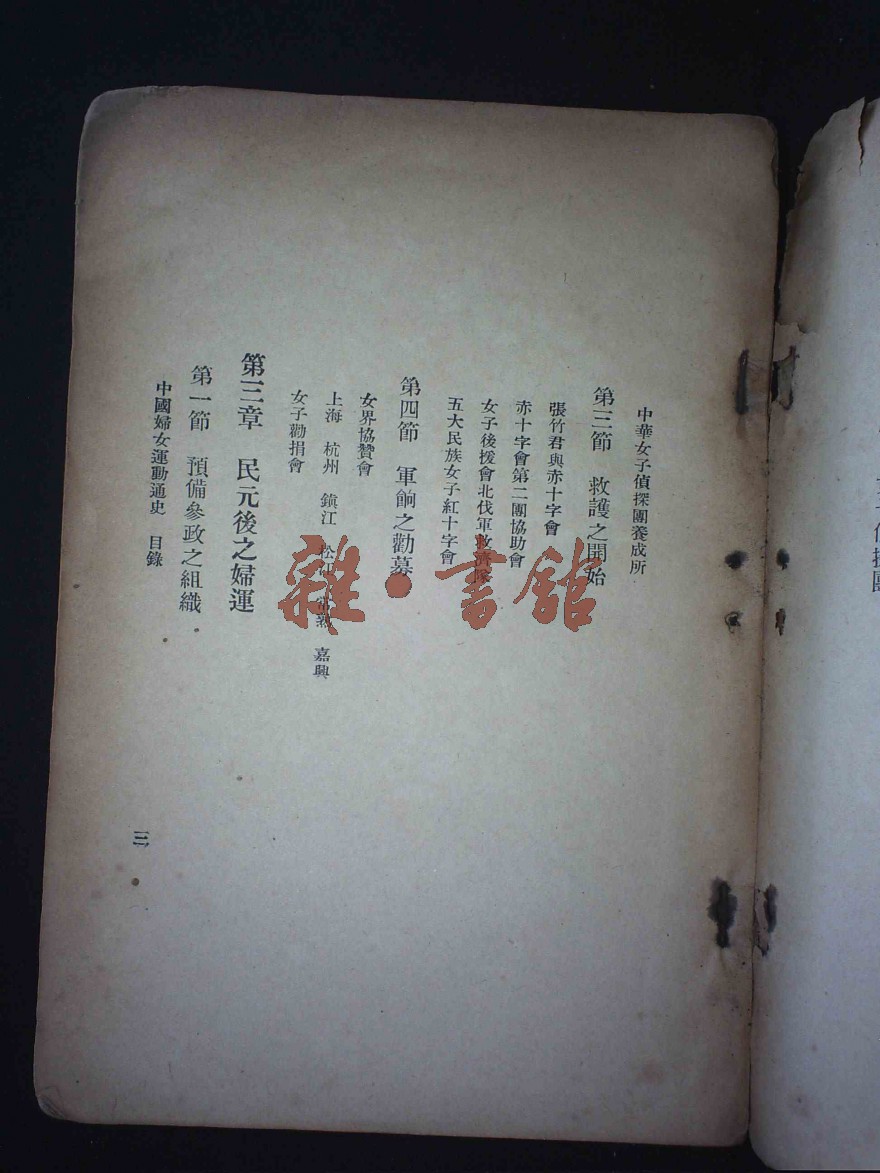 中華女子偵探團養成所
第三節　救護之開始
張竹君與赤十字會
赤十字會第二團協助會
女子後援會北伐軍救濟隊
五大民族女子紅十字會
第四節　軍餉之勸募
女界協贊會
上海　杭州　鎮江　松江　常熟　嘉興
女子勸捐會
第三章　民元後之婦運
第一節　預備參政之組織
中國婦女運動通史　目錄
三
雜·書館